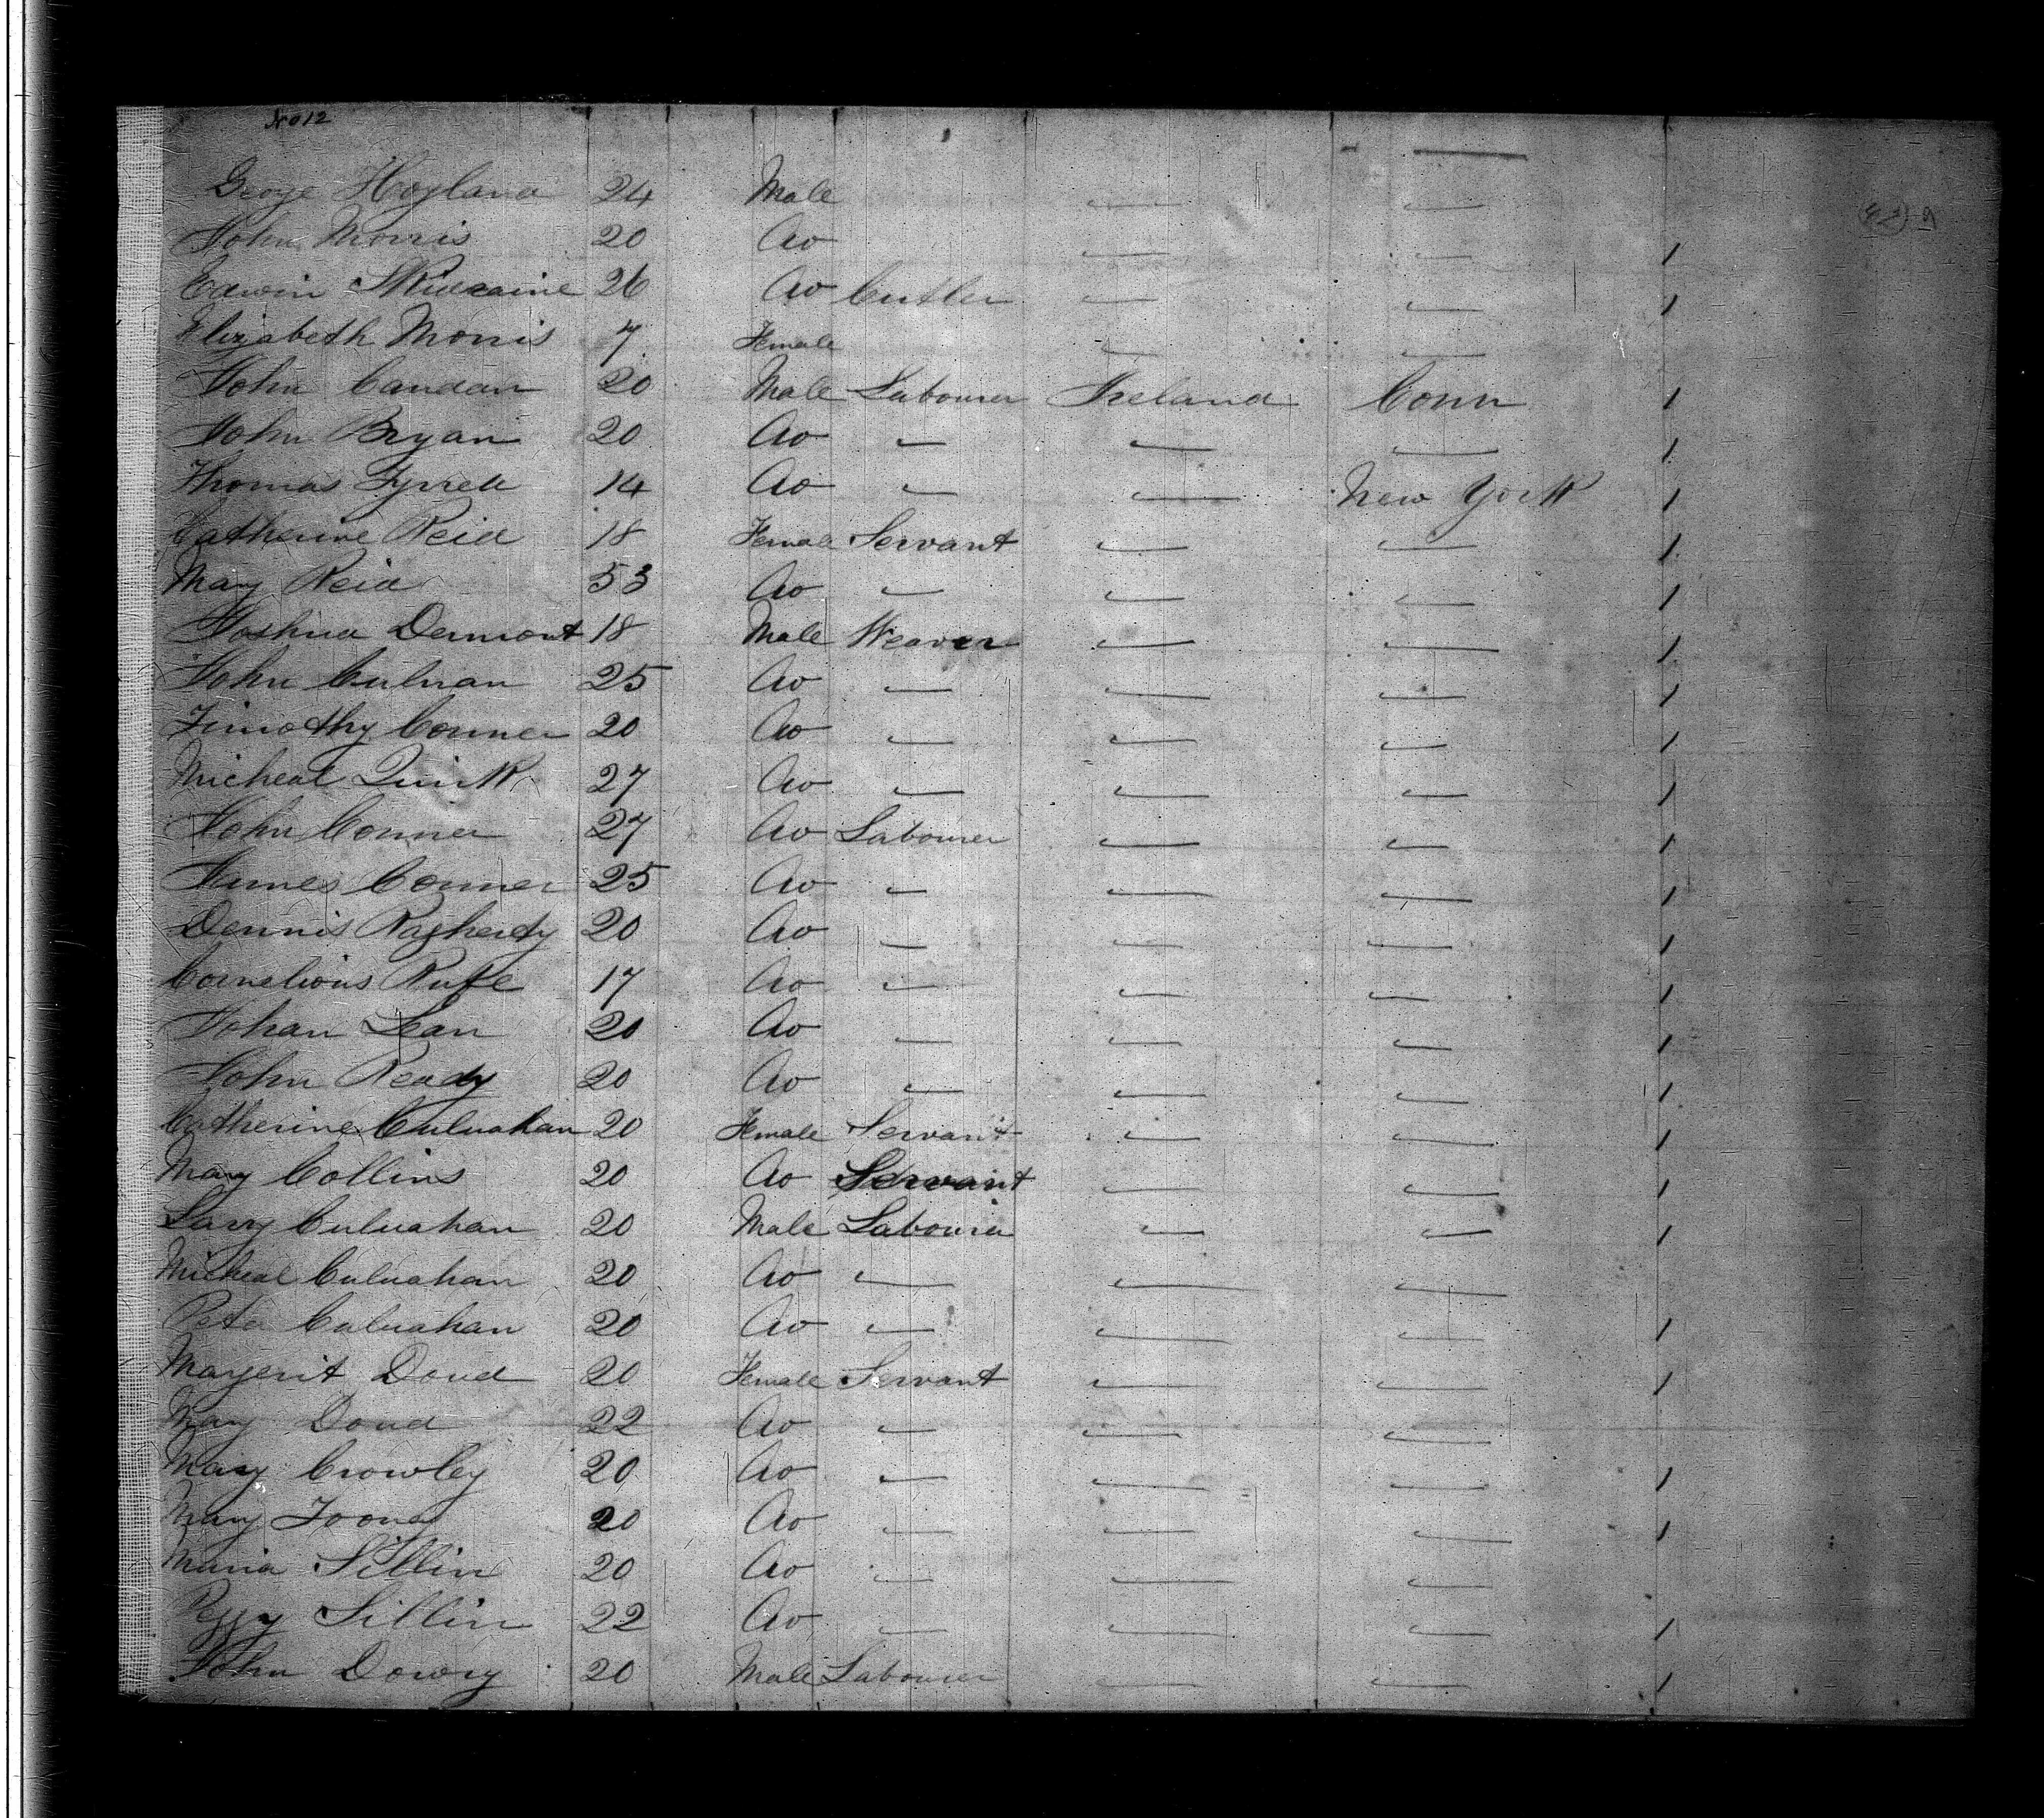 No 12
George Hoyland 24 Male — —
John Morris 20 do — —
Edwin 26 do Cutler — —
Elizabeth Morris 7 Female — —
John Candan 20 Male Labourer Ireland Conn
John Bryan 20 do — — —
Thomas Tyrrell 14 do — — New York
Catherine Reid 18 Female Servant — —
Mary Reid 53 do — — —
Joshua Dermont 18 Male Weaver — —
John Culnan 25 do — — —
Timothy Conner 20 do — — —
Micheal Quirk 27 do — — —
John Conner 27 do Labourer — —
James Conner 25 do — — —
Dennis Ragherdy 20 do — — —
Cornelious 17 do — — —
Johan Lean 20 do — — —
John Ready 20 do — — —
Catherine Culnahan 20 Female Servant — —
Mary Collins 20 do Servant — —
Larry Culnahan 20 Male Labourer — —
Micheal Culnahan 20 do — — —
Peter Culnahan 20 do — — —
Margerit Doud 20 Female Servant — —
Mary Doud 22 do — — —
Mary Crowley 20 do — — —
Mary 20 do — — —
Maria Sillin 20 do — — —
Peggy Sillin 22 do — — —
John Dowry 20 Male Labourer — —